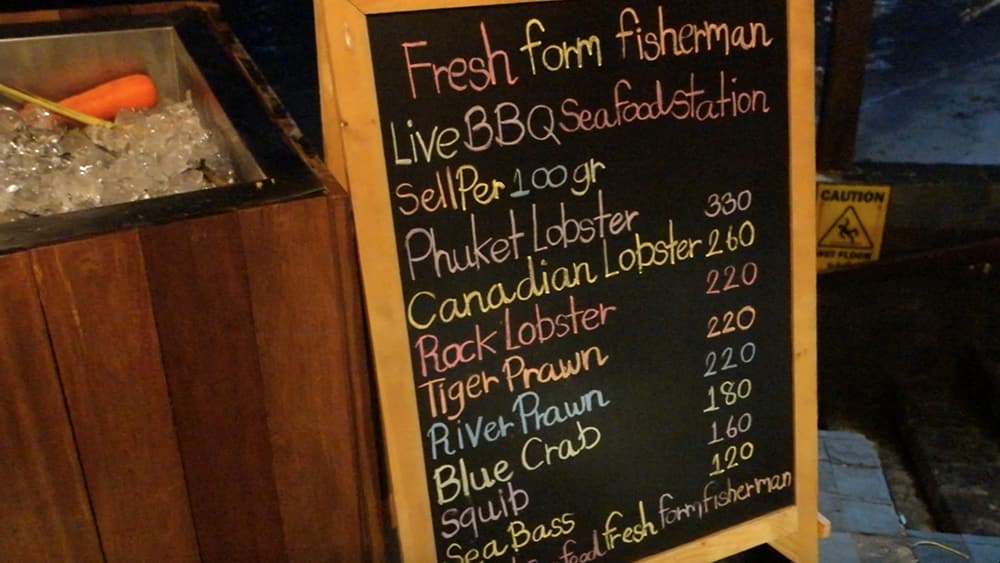 Fresh form fisherman
Live BBQ Seafood station
Sell Per 100 gr
Phuket Lobster 330
Canadian Lobster 260
Rock Lobster 220
Tiger Prawn 220
River Prawn 220
Blue Crab 180
Squib 160
Sea Bass 120
food fresh form fisherman
CAUTION
WET FLOOR